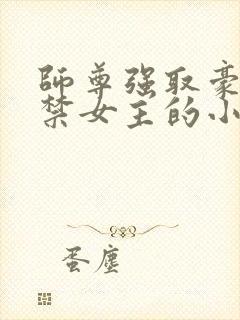 師尊強取豪
禁女主的小
蛋塵